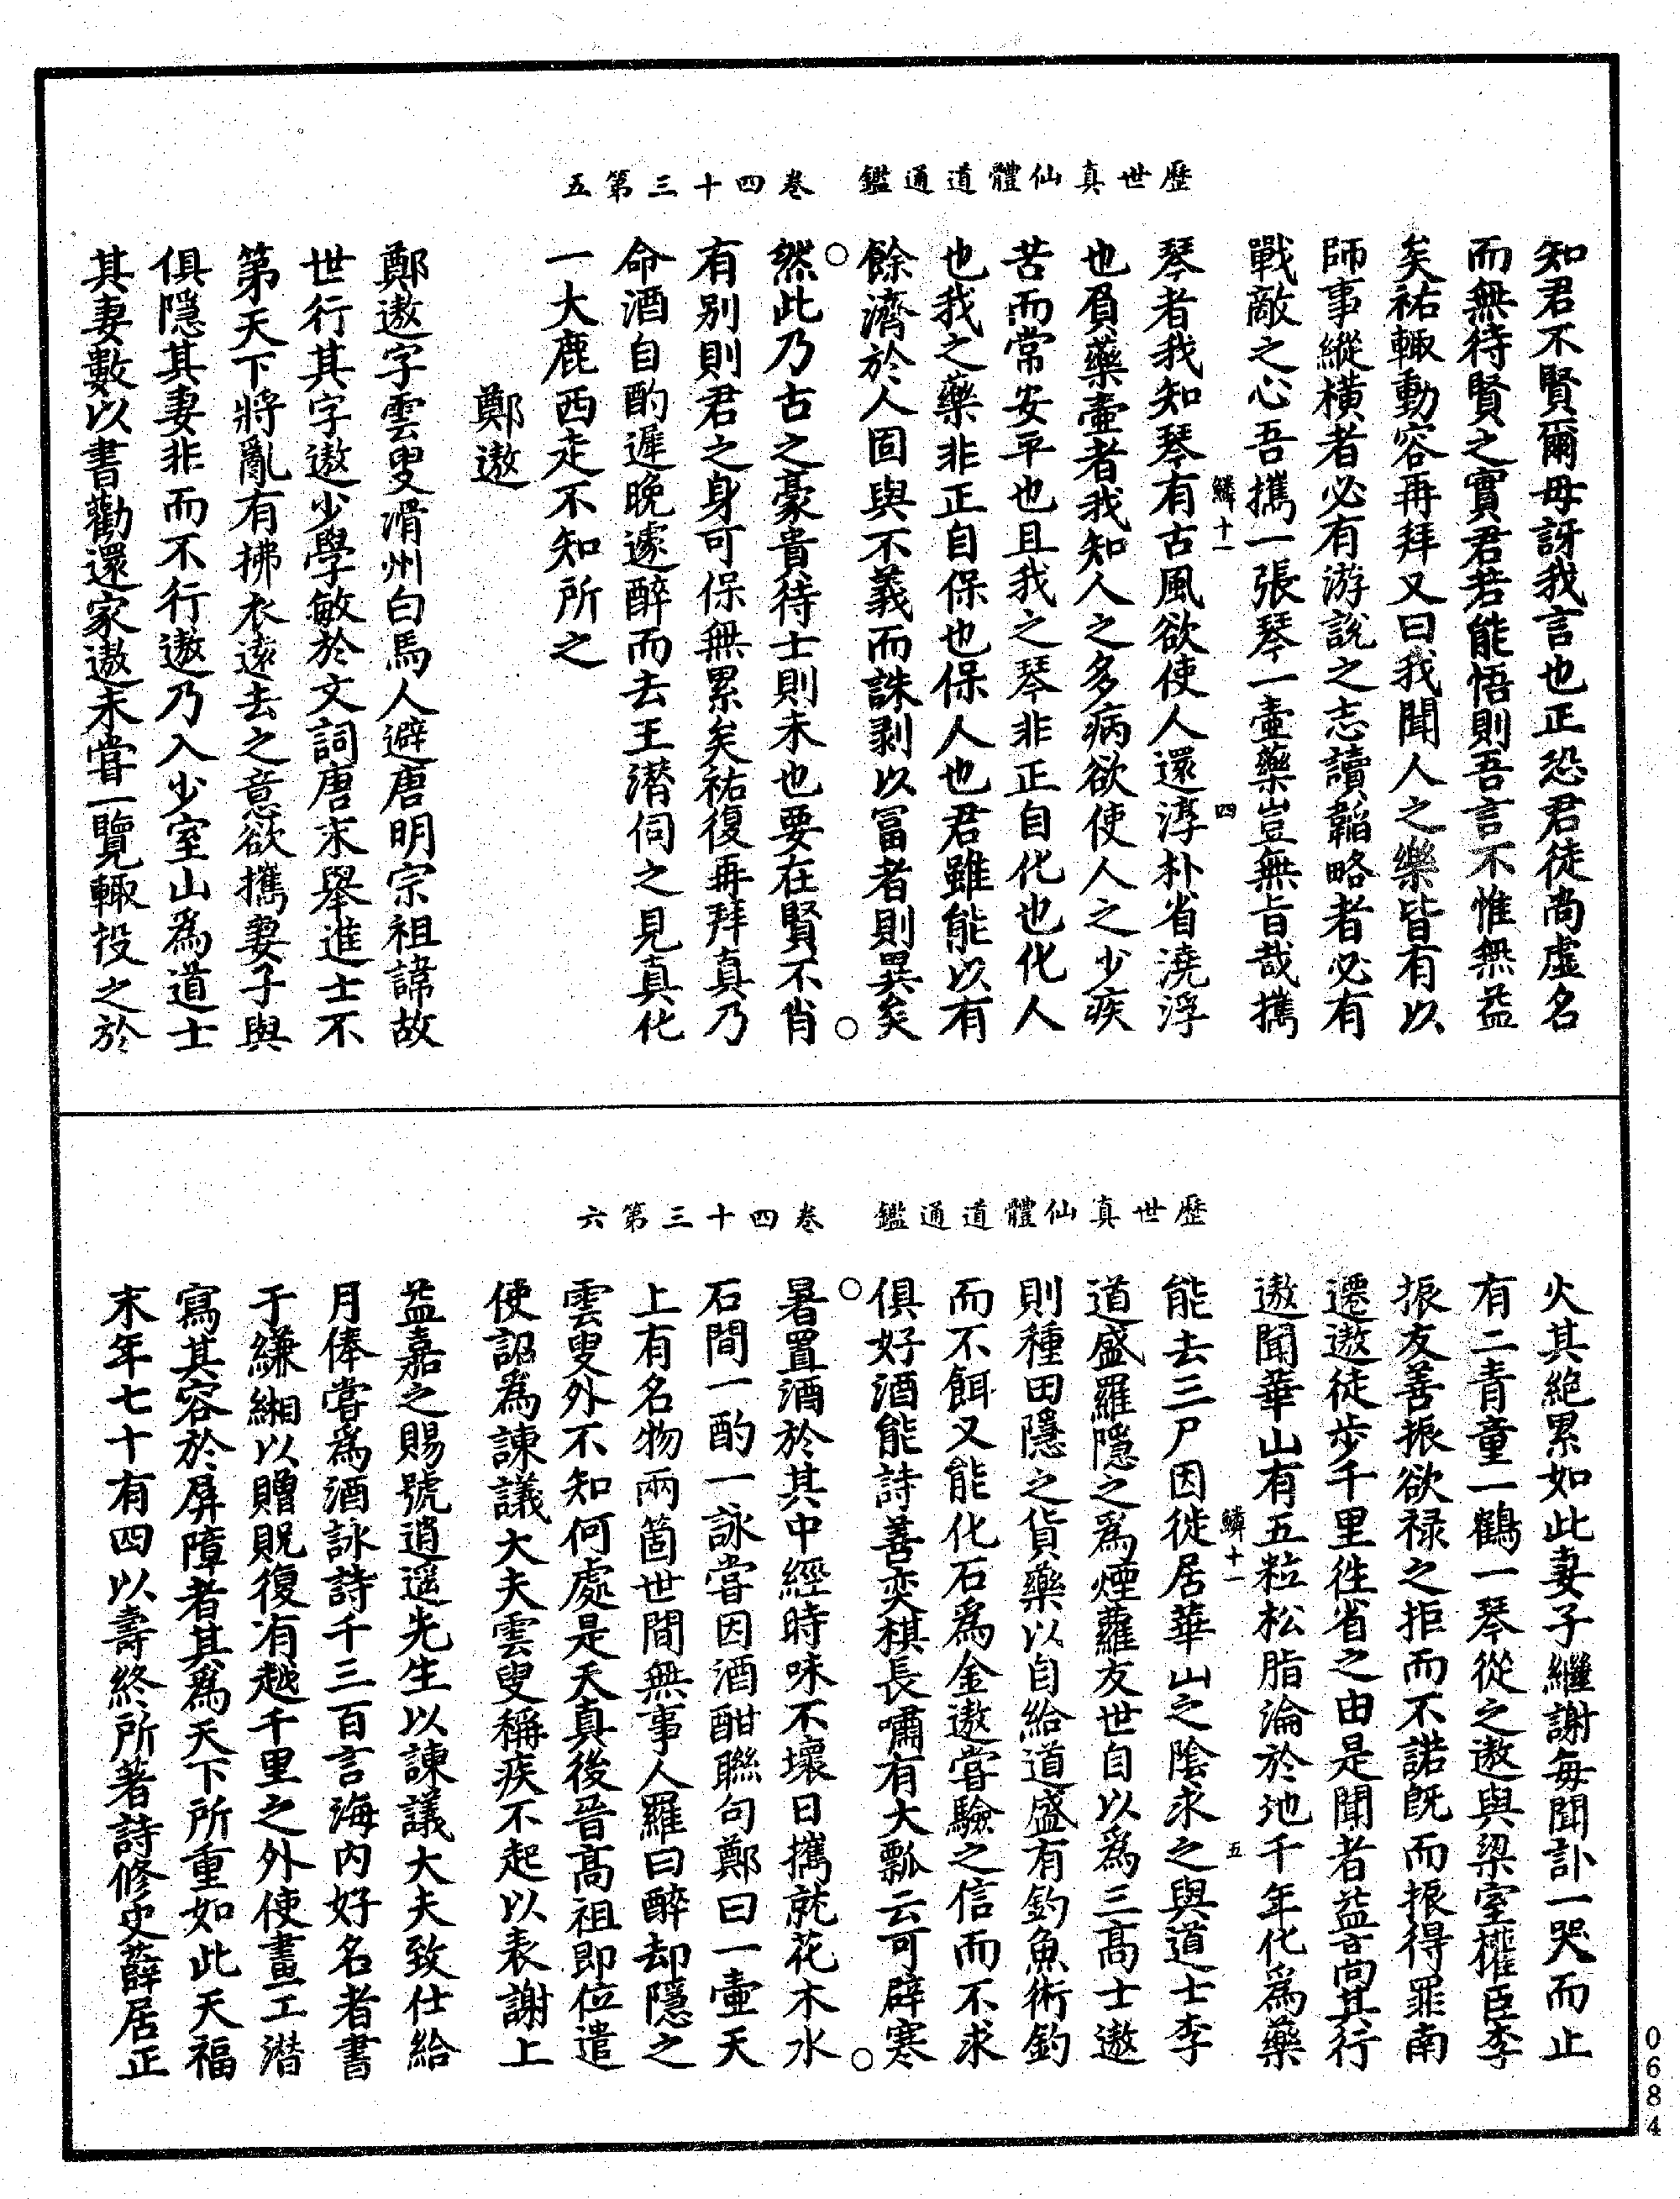 歷世真仙體道通鑑 卷四十三第五
知君不賢爾毋訝我言也正恐君徒尚虛名
而無待賢之實君若能悟則吾言不惟無益
矣祐輙動容再拜又曰我聞人之樂皆有以
師事縱橫者必有游說之志讀韜略者必有
戰敵之心吾攜一張琴一壷藥豈無旨哉攜
鱗十一 四
琴者我知琴有古風欲使人還淳朴省澆浮
也負藥壷者我知人之多病欲使人之少疾
苦而常安平也且我之琴非正自化也化人
也我之藥非正自保也保人也君雖能以有
餘濟於人固與不義而誅剥以冨者則異矣
然此乃古之豪貴待士則未也要在賢不肖
有别則君之身可保無累矣祐復再拜真乃
命酒自酌遲晚遽醉而去王潛伺之見真化
一大鹿西走不知所之
鄭遨
鄭遨字雲叟滑州白馬人避唐明宗祖諱故
世行其字遨少學敏於文詞唐末舉進士不
第天下將亂有拂衣遠去之意欲攜妻子與
俱隱其妻非而不行遨乃入少室山為道士
其妻數以書勸還家遨未甞一覽輙投之於
歷世真仙體道通鑑 卷四十三第六
火其絶累如此妻子繼謝每聞訃一哭而止
有二青童一鶴一琴從之遨與梁室權臣李
振友善振欲禄之拒而不諾既而振得罪南
遷遨徒步千里徃省之由是聞者益高其行
遨聞華山有五粒松脂淪於地千年化為藥
鱗十一 五
能去三尸因徙居華山之陰求之與道士李
道盛羅隱之為煙蘿友世自以為三高士遨
則種田隱之貨藥以自給道盛有釣魚術釣
而不餌又能化石為金遨甞驗之信而不求
俱好酒能詩善奕棋長嘯有大瓢云可辟寒
暑置酒於其中經時味不壞日攜就花木水
石間一酌一詠甞因酒酣聯句鄭曰一壷天
上有名物兩箇世間無事人羅曰醉却隱之
雲叟外不知何處是天真後晉高祖即位遣
使詔為諫議大夫雲叟稱疾不起以表謝上
益嘉之賜號逍遥先生以諫議大夫致仕給
月俸甞為酒詠詩千三百言海内好名者書
于縑緗以贈貺復有越千里之外使畫工潛
寫其容於屏障者其為天下所重如此天福
末年七十有四以壽終所著詩修史薛居正
0684